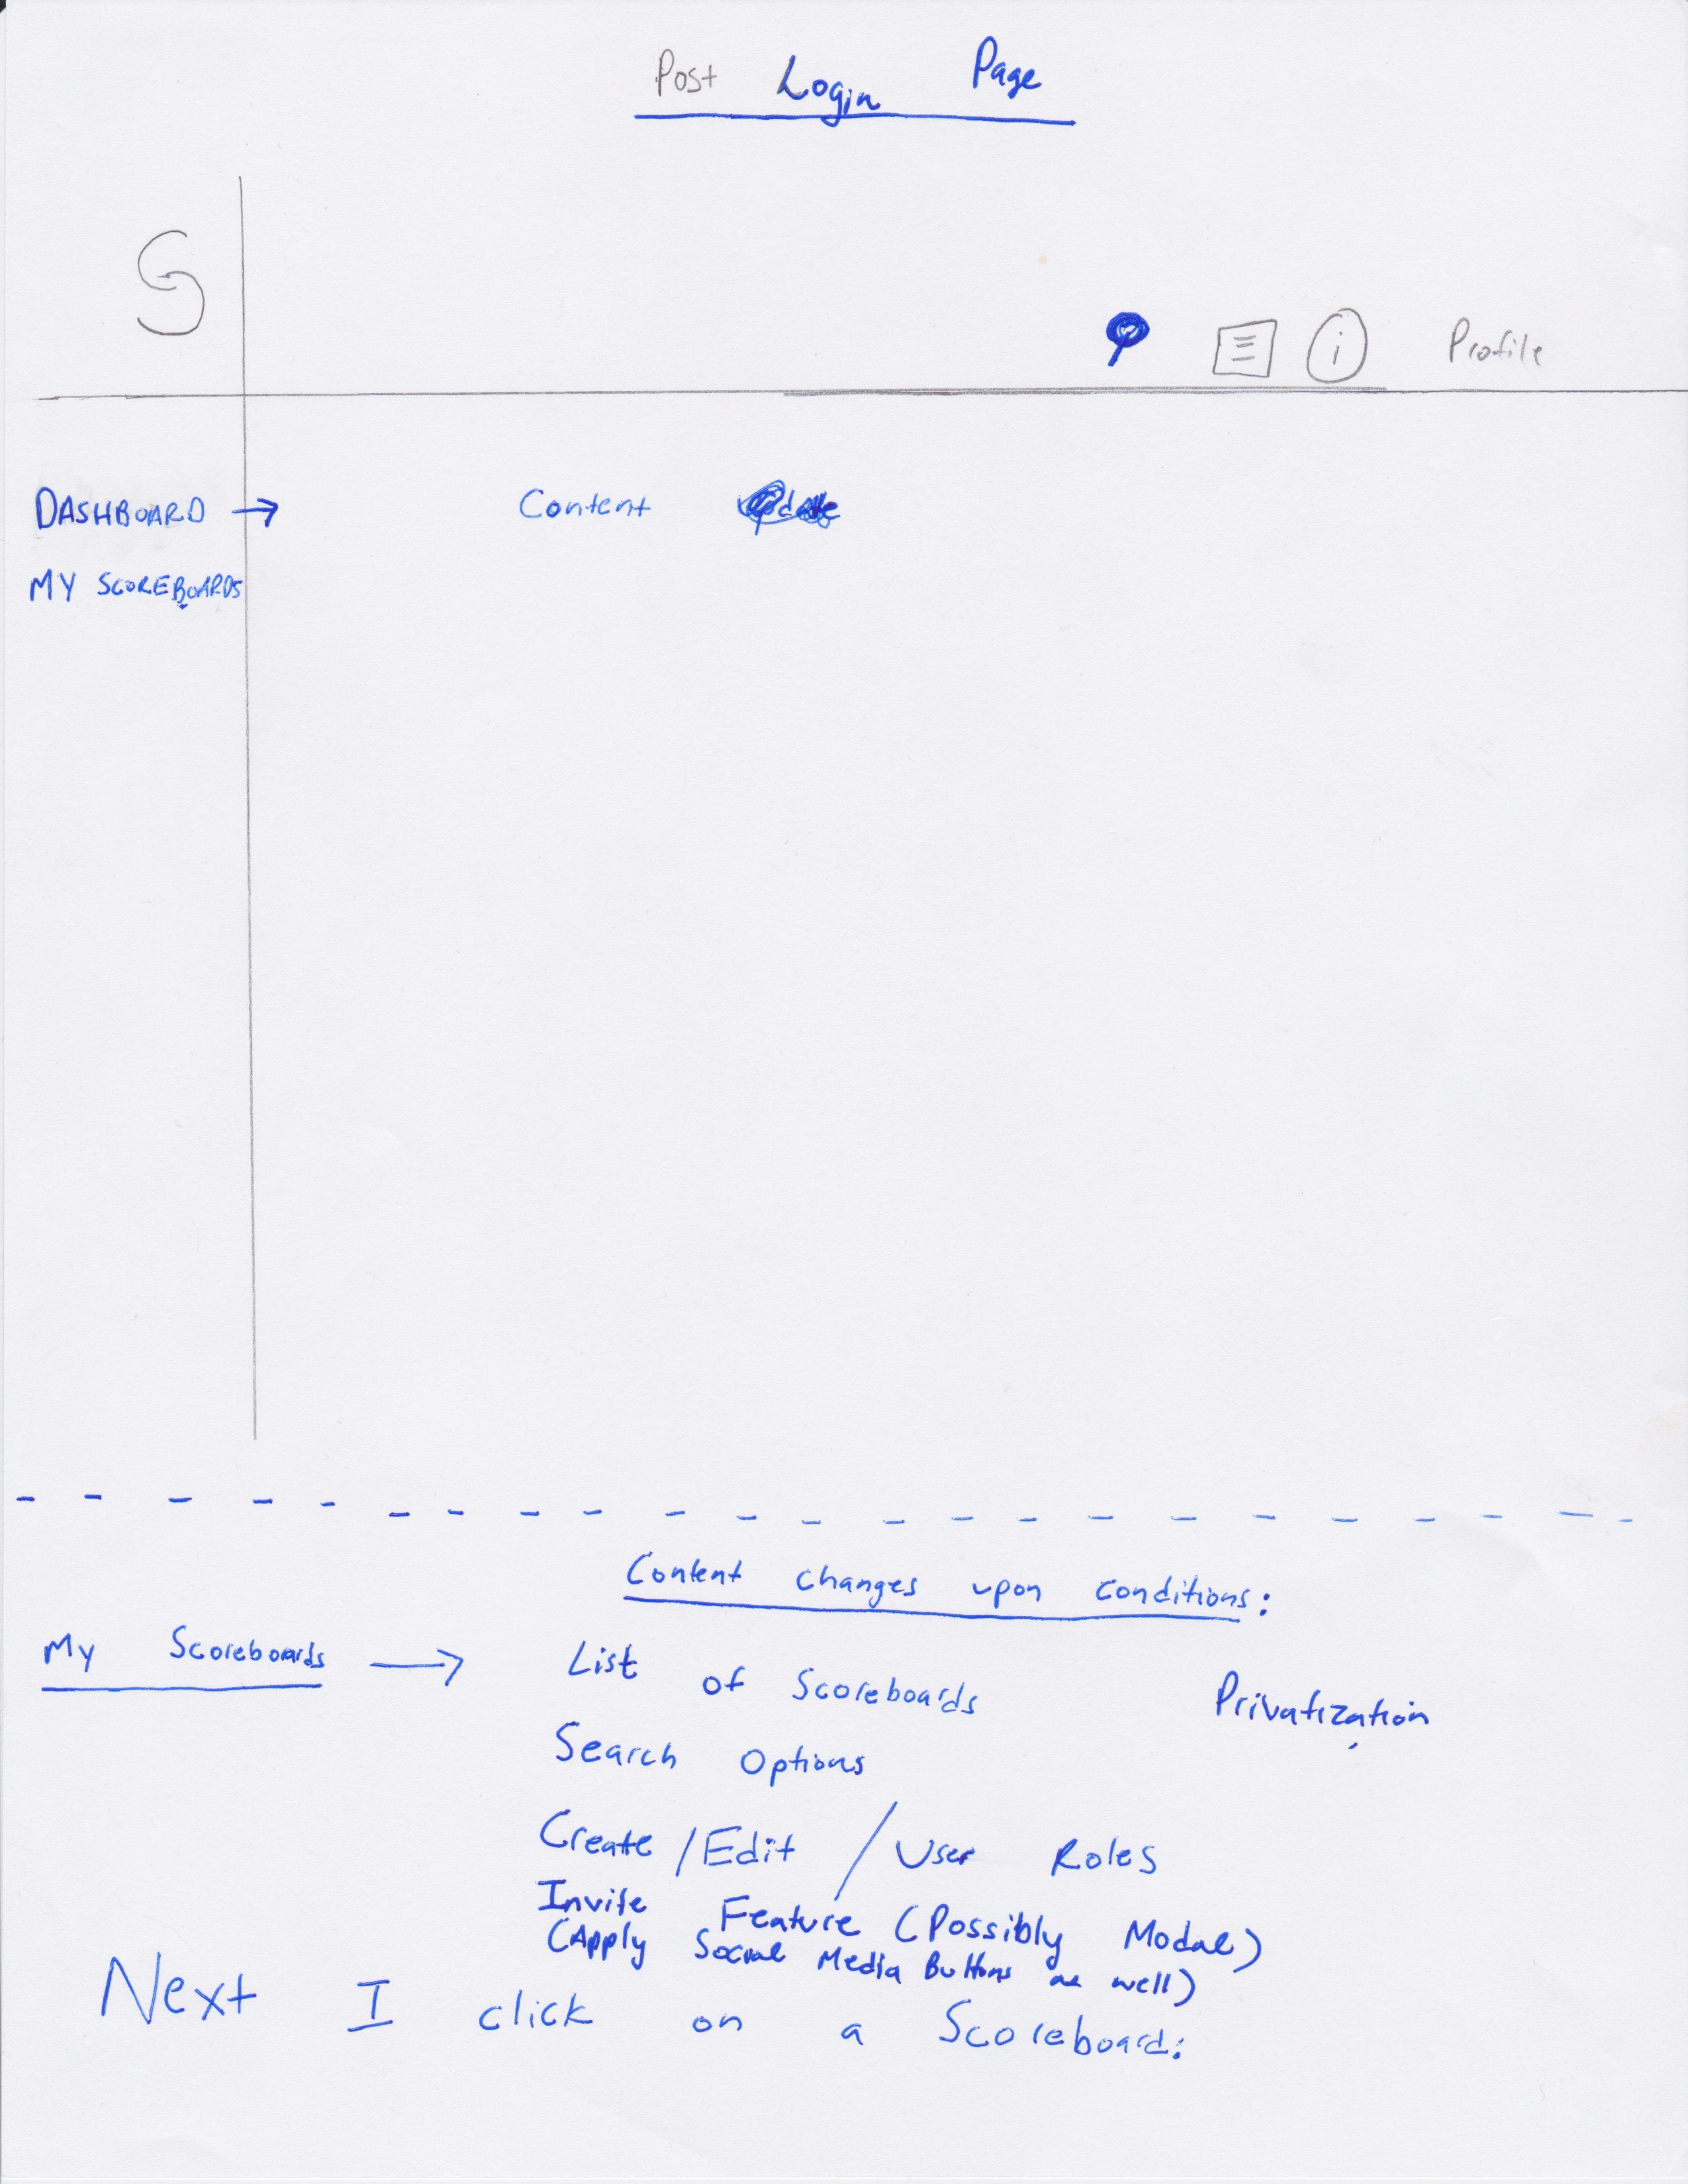 Post Login Page
S
i Profile
DASHBOARD → Content
MY SCOREBOARDS
Content changes upon conditions:
My Scoreboards → List of Scoreboards
Privatization
Search Options
Create / Edit / User Roles
Invite Feature (Possibly Modal)
(Apply Social Media Buttons as well)
Next I click on a Scoreboard: